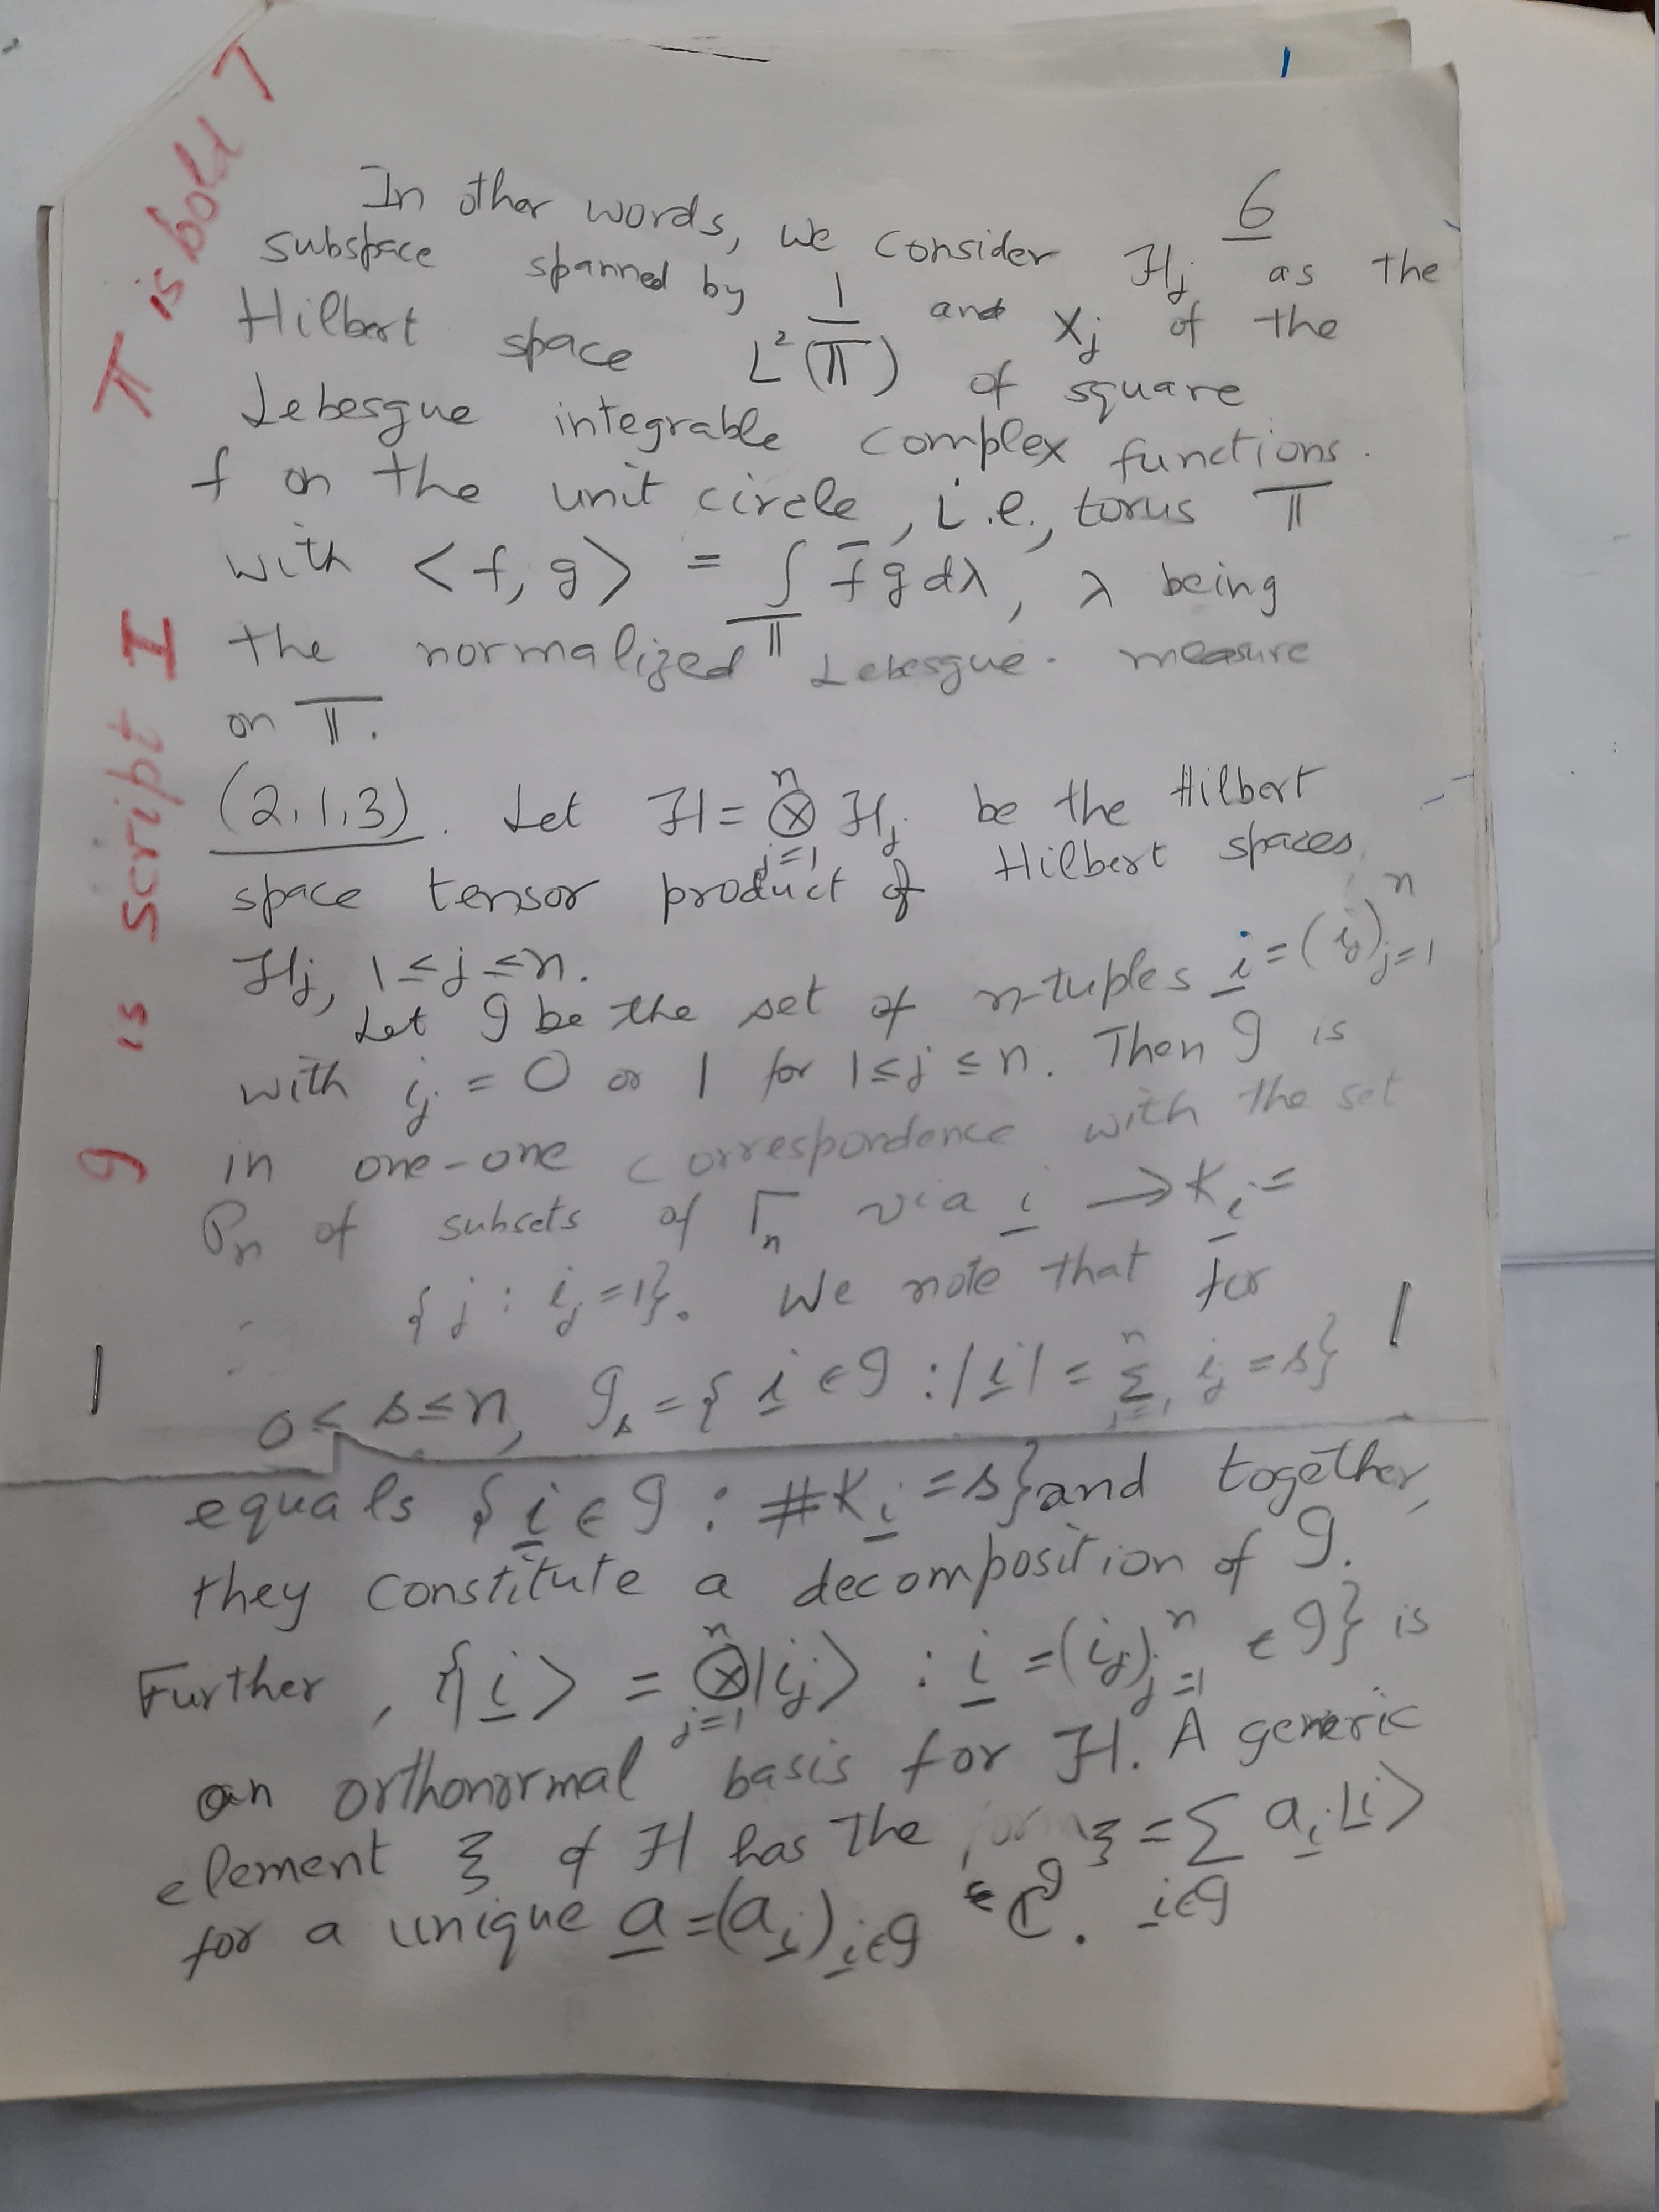 6
In other words, we consider ℋ_j as the
subspace spanned by 1 and X_j of the
Hilbert space L²(𝕋) of square
Lebesgue integrable complex functions
f on the unit circle, i.e., torus 𝕋
with <f, g> = ∫_𝕋 f̄ g dλ, λ being
the normalized Lebesgue measure
on 𝕋.
(2.1.3). Let ℋ = ⊗_{j=1}^n ℋ_j be the Hilbert
space tensor product of Hilbert spaces
ℋ_j, 1 ≤ j ≤ n.
Let ℐ be the set of n-tuples i̲ = (i_j)_{j=1}^n
with i_j = 0 or 1 for 1 ≤ j ≤ n. Then ℐ is
in one-one correspondence with the set
P_n of subsets of Γ_n via i̲ → K_i̲ =
{j : i_j = 1}. We note that for
0 ≤ s ≤ n, ℐ_s = {i̲ ∈ ℐ : |i̲| = Σ_{j=1}^n i_j = s}
equals {i̲ ∈ ℐ : #K_i̲ = s} and together,
they constitute a decomposition of ℐ.
Further, {|i̲> = ⊗_{j=1}^n |i_j> : i̲ = (i_j)_{j=1}^n ∈ ℐ} is
an orthonormal basis for ℋ. A generic
element ξ of ℋ has the form ξ = Σ_{i̲∈ℐ} a_i̲ |i̲>
for a unique a̲ = (a_i̲)_{i̲∈ℐ} ∈ ℂ^ℐ.
ℐ is script I
𝕋 is bold T